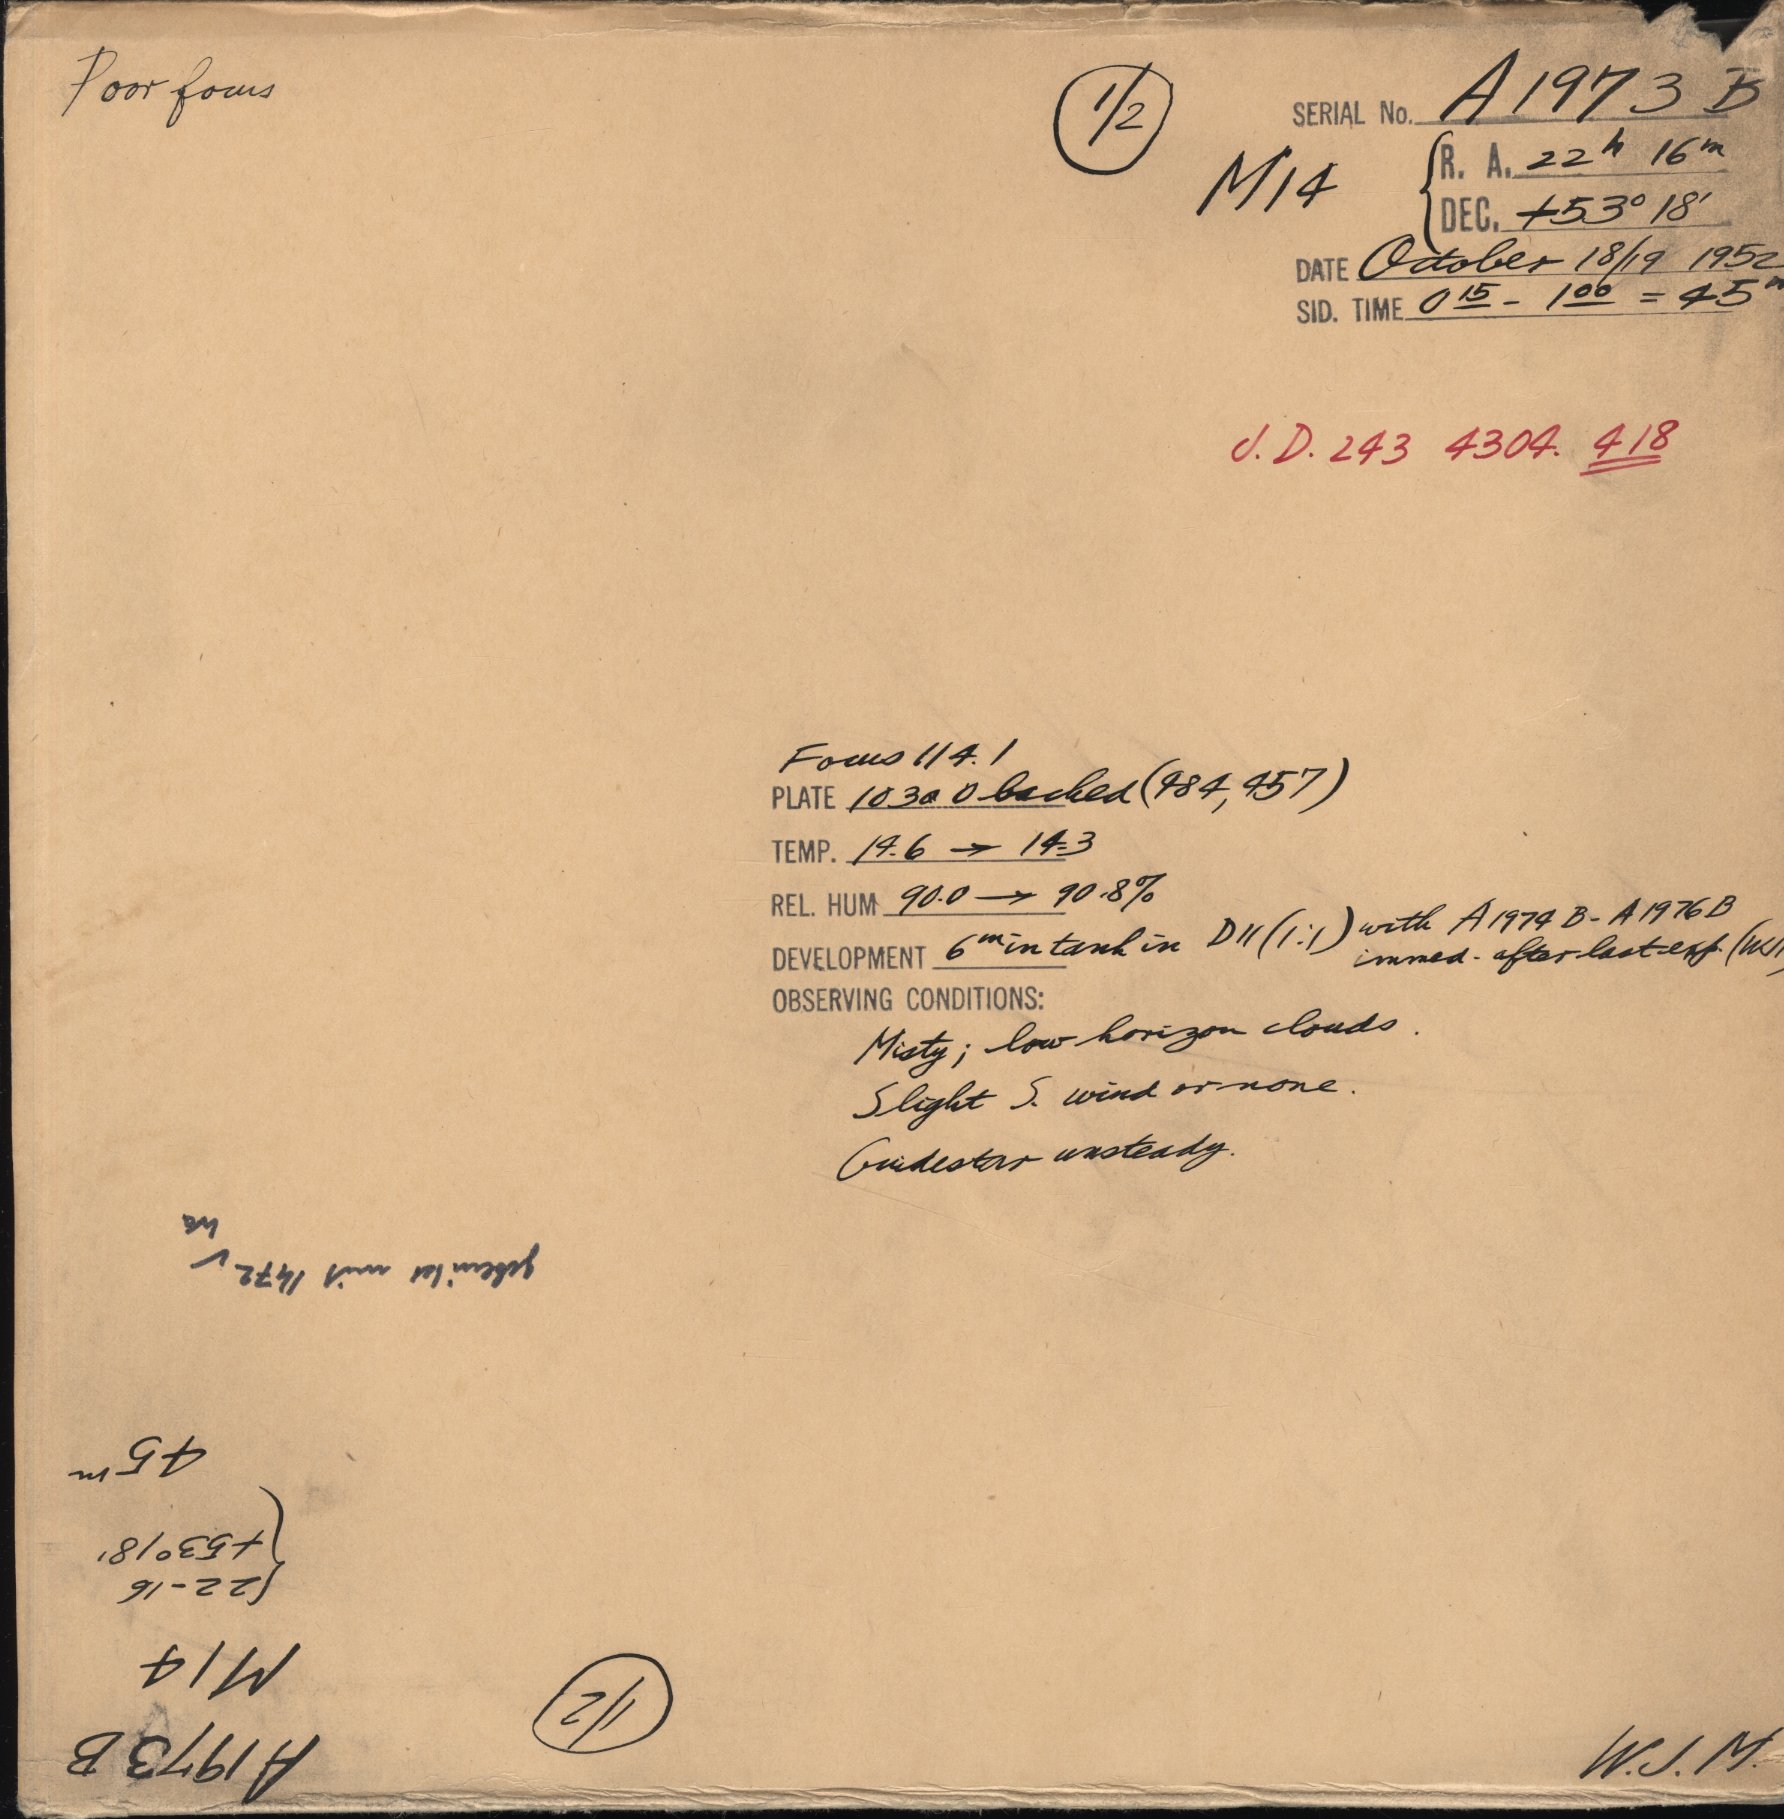 Poor focus
1/2
SERIAL No. A 1973 B
M14
R. A. 22h 16m
DEC. +53° 18'
DATE October 18/19 1952
SID. TIME 0 15 - 1 00 = 45m
J. D. 243 4304. 418
Focus 114.1
PLATE 103a O backed (484, 457)
TEMP. 14.6 → 14.3
REL. HUM 90.0 → 90.8%
DEVELOPMENT 6m in tank in D11 (1:1) with A 1974 B - A 1976 B
immed. after last exp.
OBSERVING CONDITIONS:
Misty; low horizon clouds.
Slight S. wind or none.
Guidestar unsteady.
W.J.M.
A1973B
1/2
M14
22-16
+53° 18'
45m
mit 1472